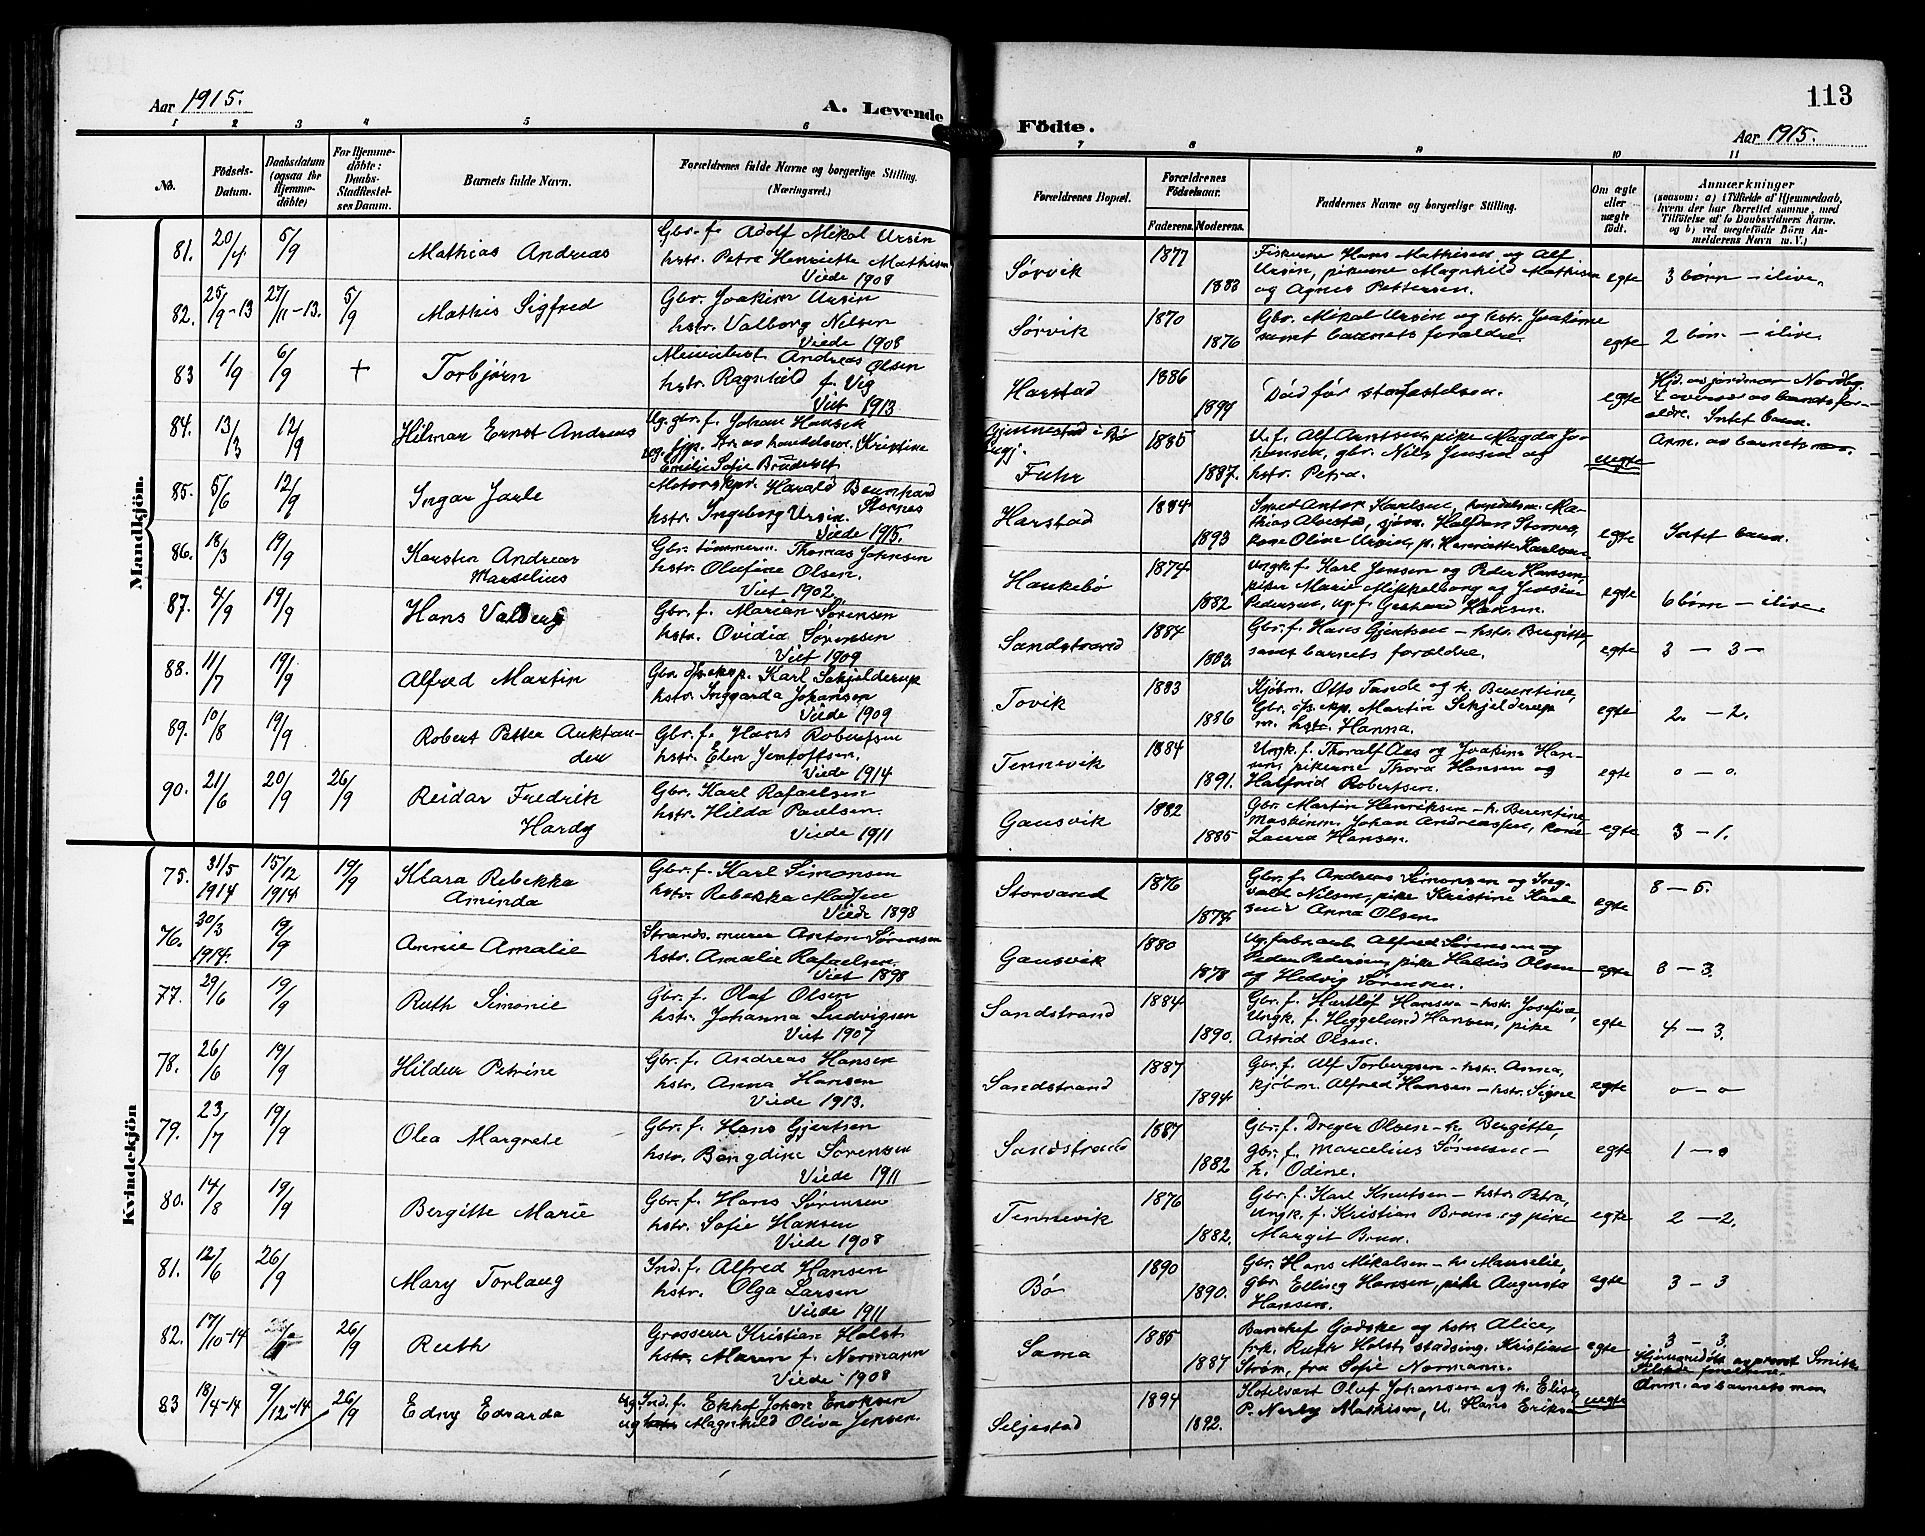 Aar 1915.
A. Levende
Födte.
113
Aar 1915.
1 2 3 4 5 6 7 8 9 10 11
No. Födsels-Datum. Daabsdatum (ogsaa for Hjemmedöbte) For Hjemmedöbte: Daabs-Stadfæstelses Datum. Barnets fulde Navn. Forældrenes fulde Navne og borgerlige Stilling. (Næringsvei.)
Forældrenes Bopæl. Forældrenes Födselsaar. Faderens. Moderens. Faddernes Navne og borgerlige Stilling. Om ægte eller uægte födt. Anmærkninger
Mandkjön.
81. 20/4 5/9 Mathias Andreas Gbr. f. Adolf Mikal Ursin
hstr. Petra Henriette Mathisen
Viede 1908
Sørvik 1877 1883 Fiskerne Hans Mathisen og Alf
Ursin, pikerne Magnhild Mathisen
og Agnes Pettersen. egte 3 børn – ilive.
82. 25/9-13 27/11-13. 5/9 Mathis Sigfred Gbr. Joakim Ursin
hstr. Valborg Nilsen
Viede 1908
Sørvik 1870 1876 Gbr. Mikal Ursin og hstr. Joakime
samt barnets forældre egte 2 børn – ilive.
83 1/9 6/9 + Torbjørn Andreas Olsen
hstr. Ragnhild f. Vig
Viet 1913
Harstad 1886 1894 Død før stadfæstelsen. egte Hjd. av jordmor
Intet barn.
84. 13/3 12/9 Hilmar Ernst Andreas Ug. gbr. f. Johan Hansen
Kristine
Emilie Sofie
Fuhr 1885 1887. U. f. Alf Arntsen, pike Magda Johansen, gbr. Nils Jensen og
hstr. Petra. uegte Anm. av barnets
85. 5/6 12/9 Ingar Jarle Motorskpr. Harald Bernhard
Stornes
hstr. Ingeborg Ursin.
Viede 1915.
Harstad 1884 1893 Smed Anton Karlsen,
kone Oline Ursin, p. Henriette Karlsen egte Intet barn.
86. 18/3 19/9 Karsten Andreas
Marselius Gbr. tømmerm. Thomas Johnsen
hstr. Olufine Olsen.
Viet 1902.
Haukebø 1874 1882 Ungk. f. Karl Jensen og Peder Hansen,
piker Marie Mikkelborg og Jensine
Pedersen, ug. f. Gerhard Hansen. egte 6 børn – ilive
87. 4/9 19/9 Hans Valberg Gbr. f. Marian Sørensen
hstr. Ovidia Sørensen
Viet 1909
Sandstrand 1884 1883. Gbr. f. Hans Gjertsen – hstr. Bergitte,
samt barnets forældre. egte 3 – 3 –
88. 11/7 19/9 Alfred Martin Gbr. Karl Schjelderup
hstr. Inggarda Johansen
Viede 1909
Tovik 1883 1886 Kjøbm. Otto Tande og h. Berentine,
Gbr. Martin Schjelderup
m. hstr. Hanna. egte 2. – 2.
89. 10/8 19/9 Robert Petter Auktander Gbr. f. Hans Robertsen
hstr. Elen Jentoftsen.
Viede 1914
Tennevik 1884 1891. Ungk. f. Thoralf Aas og Joakim Hansen, pikerne Thora Hansen og
Halfrid Robertsen. egte o – o.
90. 21/6 20/9 26/9 Reidar Fredrik
Hardy Gbr. Karl Rafaelsen
hstr. Hilda Paulsen.
Viede 1911
Gausvik 1882 1885 Gbr. Martin Henriksen – h. Berentine,
Maskinm. Johan Andreassen, kone
Laura Hansen. egte 3 – 1.
Kvindekjön
75. 31/5 1914 15/12 1914 19/9 Klara Rebekka
Aminda Gbr. f. Karl Simonsen
hstr. Rebekka Madsen
Viede 1898
Storvand 1876 1874 Gbr. f. Andreas Simonsen og Ingvald Nilsen, pike Kristine
Anna Olsen. egte 8 – 5.
76. 30/3 1914. 19/9 Annie Amalie Strands. murer Anton Sørensen
hstr. Amalie Rafaelsen.
Viet 1898
Gausvik 1880 1878 Ug. fabr. arb. Alfred Sørensen og
Peder Pedersen, pike Haldis Olsen
og Hedvig Sørensen. egte 8 – 3.
77. 29/6 19/9 Ruth Simonie Gbr. f. Olaf Olsen
hstr. Johanna Ludvigsen
Viet 1907
Sandstrand 1884 1890. Gbr. f. Hartløf Hansen – hstr. Josefine,
Ungk. f. Heggelund Hansen, pike
Astrid Olsen. egte 4 – 3.
78. 26/6 19/9 Hildur Petrine Gbr. f. Andreas Hansen
hstr. Anna Hansen
Viede 1913.
Sandstrand 1887 1894 Gbr. f. Alf Torbergsen – hstr. Anna,
kjøbm. Alfred Hansen – hstr. Signe egte o – o
79. 23/7 19/9 Olea Margrete Gbr. f. Hans Gjertsen
hstr. Bergdine Sørensen
Viede 1911
Sandstrand 1887 1882 Gbr. f. Dreyer Olsen – h. Bergitte,
Gbr. f. Marcelius Sørensen –
h. Odine. egte 1 – o
80. 14/8 19/9 Bergitte Marie Gbr. f. Hans Sørensen
hstr. Sofie Hansen
Viede 1908
Tennevik 1876 1882. Gbr. f. Karl Knutsen – hstr. Petra,
Ungk. f. Kristian Brun og pike
Margit Brun. egte 2 – 2.
81. 12/6 26/9 Mary Torlaug Ind. f. Alfred Hansen
hstr. Olga Larsen
Viede 1911
Bø 1890 1890. Gbr. Hans Mikalsen – h. Manselie,
gbr. Elling Hansen, pike Augusta
Hansen. egte 3 – 3
82. 17/10-14 26/9 Ruth Grosserer Kristian Holst
hstr. Maren f. Normann
Viede 1908
Sama 1885 1887 Banchef Gødske og hstr. Alice,
frk. Ruth Holst, stadsing. Kristian
Strøm, fra Sofie Normann. egte 3 – 3
Hjemmedøbt av provst Smitt
83 18/4-14 9/12-14 26/9 Edny Edvarda Ug. Ind. f. Ekhof Johan Enoksen
ug. Magnhild Oliva Jensen.
Seljestad 1894 1892. Hotelvært Oluf Johansen og h. Elise,
P. Nerly Mathisen, U. Hans Eriksen uegte Anm. av barnets mor